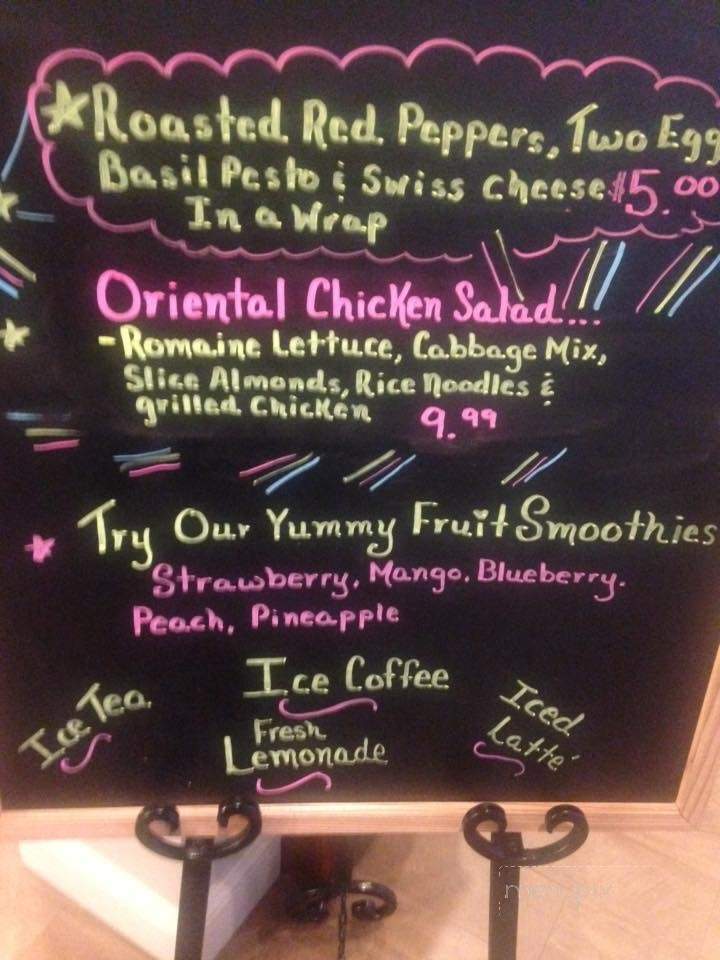 Roasted Red Peppers, Two Egg
Basil Pesto & Swiss Cheese $5.00
In a Wrap
Oriental Chicken Salad...
-Romaine Lettuce, Cabbage Mix,
Slice Almonds, Rice Noodles &
grilled Chicken 9.99
Try Our Yummy Fruit Smoothies
Strawberry, Mango. Blueberry.
Peach, Pineapple
Ice Coffee
Ice Tea
Iced
Latte'
Fresh
Lemonade